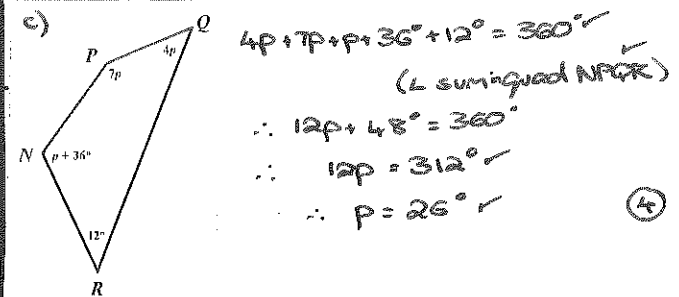 c)
Q
P
4p
7p
N
p + 36°
12°
R
4p + 7p + p + 36° + 12° = 360° ✓
(∠ sum in quad NPQR) ✓
∴ 12p + 48° = 360°
∴ 12p = 312° ✓
∴ p = 26° ✓
4